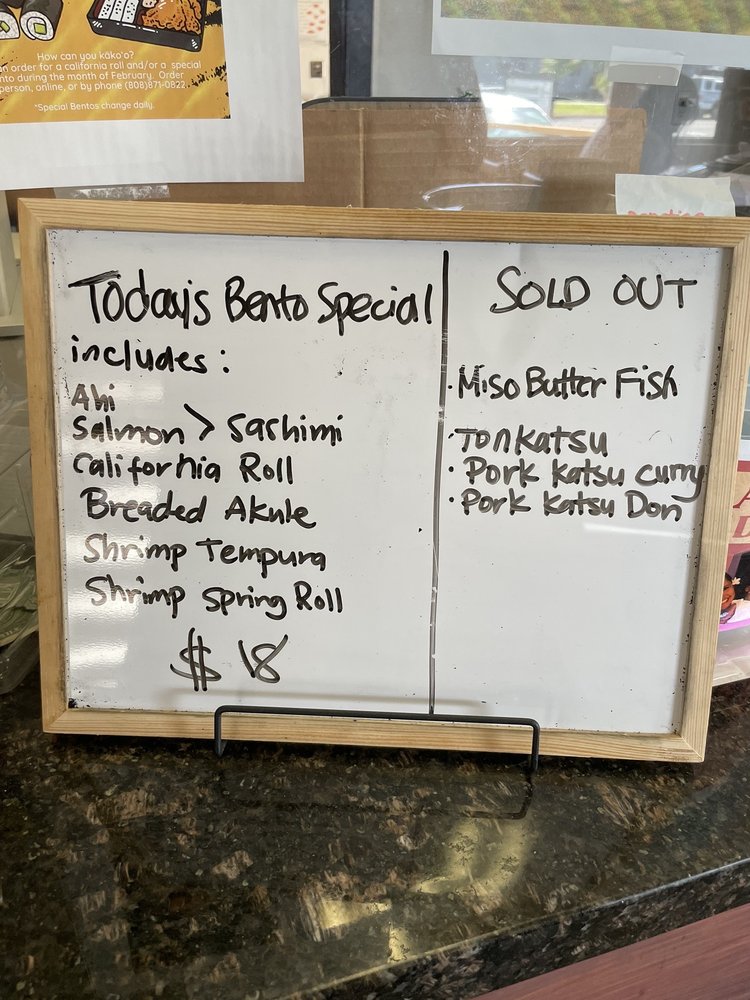 How can you kāko'o?
an order for a california roll and/or a special
nto during the month of February. Order
person, online, or by phone (808)871-0822.
*Special Bentos change daily.
Today's Bento Special
includes:
Ahi
Salmon > Sashimi
California Roll
Breaded Akule
Shrimp Tempura
Shrimp Spring Roll
$18
SOLD OUT
· Miso Butter Fish
· Tonkatsu
· Pork Katsu curry
· Pork Katsu Don